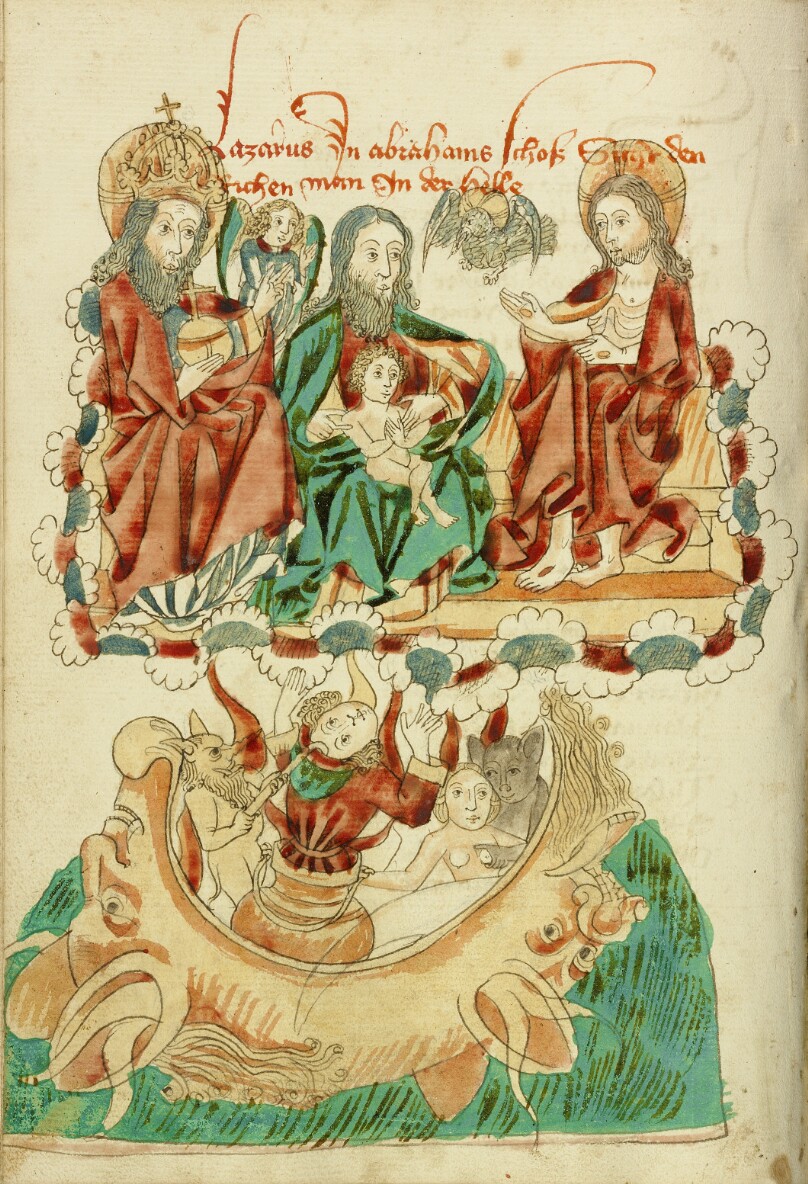 Lazarus In abrahams schoß Sicht den
Richen man In der helle